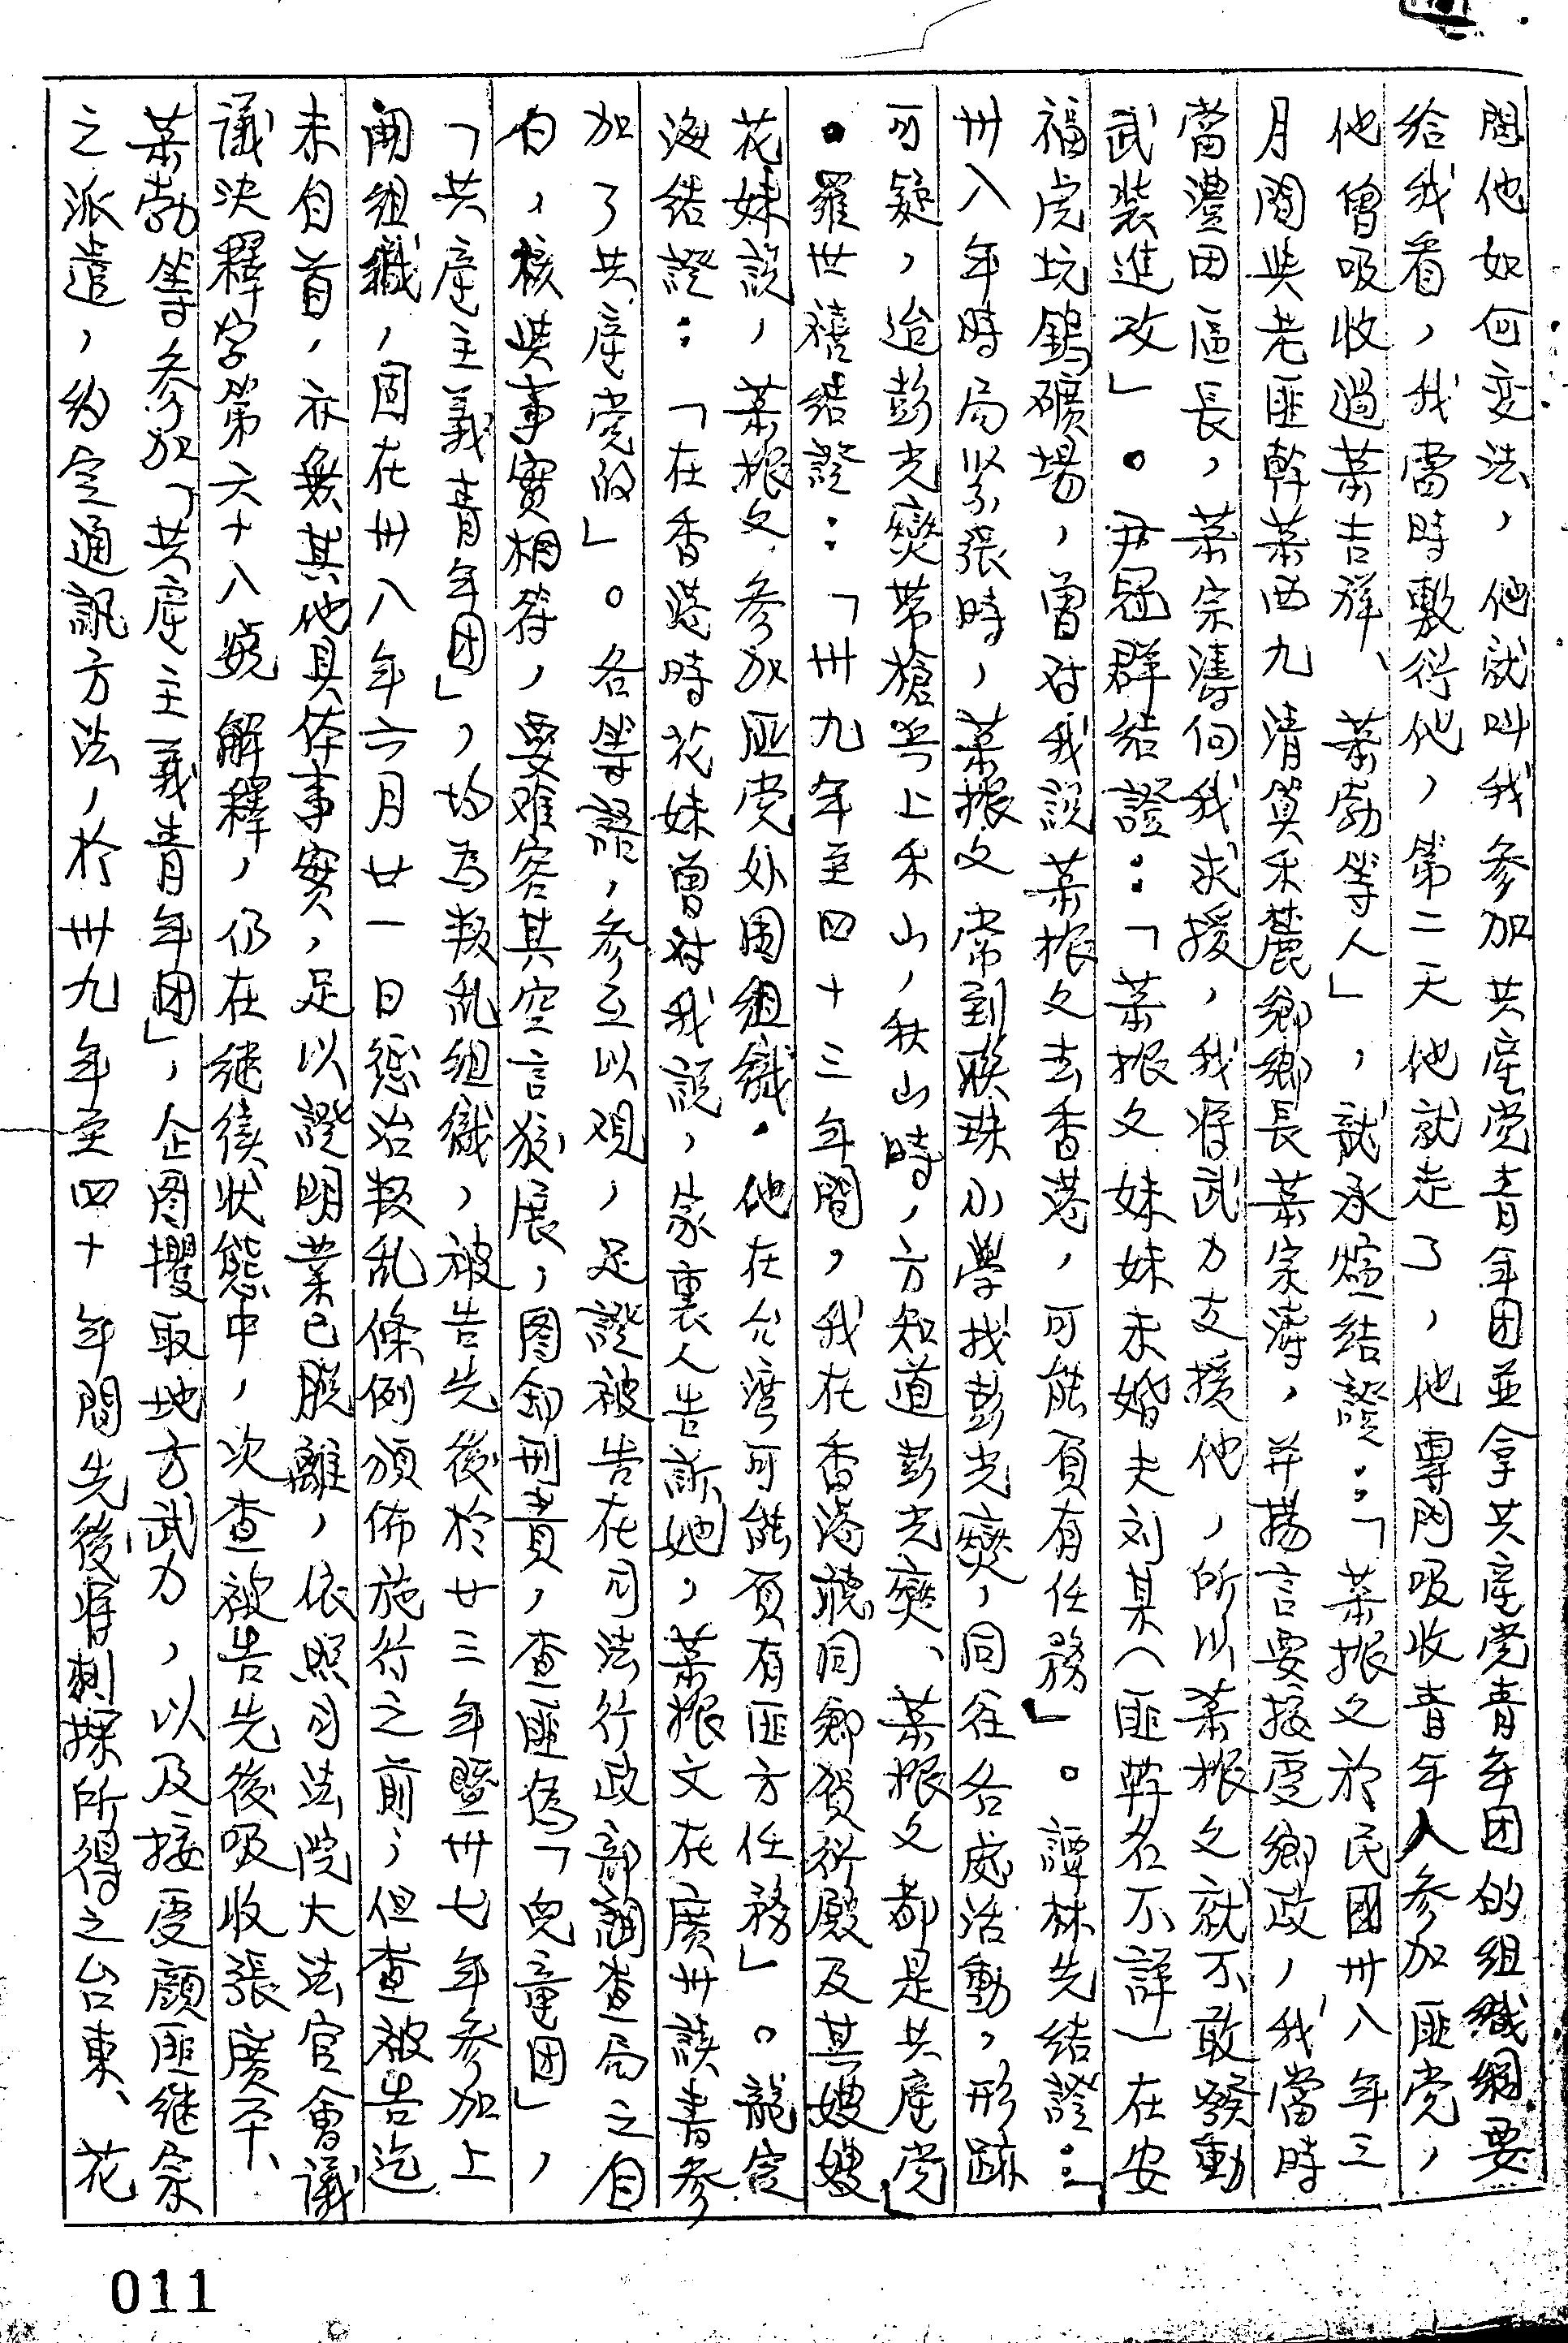 問他如何变法，他就叫我参加共產党青年团並拿共產党青年团的组織綱要
给我看，我當時敷衍他，第二天他就走了，他專門吸收青年入参加匪党，
他曾吸收過萧吉祥、萧勃等人」，龍承熔结證：「萧振文於民國卅八年三
月間與老匪幹萧西九清算禾麓鄉鄉長萧宗濤，并揚言要接受鄉政，我當時
當澧田區長，萧宗濤向我求援，我将武力支援他，所以萧振文就不敢發動
武裝進攻」。尹冠群结證：「萧振文妹妹未婚夫刘某（匪幹名不詳）在安
福虎坑鎢礦場，曾对我説萧振文去香港，可能負有任務」。譚林先结證：「
卅八年時局紧張時，萧振文常到联珠小學找彭光燮，同往各處活動，形跡
可疑，迨彭光燮带槍兵上禾山，秋山時，方知道彭光燮、萧振文都是共産党」
。羅世禧结證：「卅九年至四十三年間，我在香港聽同鄉贺衍殿及其嫂嫂
花妹説，萧振文参加匪党外围组織，他在允湾可能負有匪方任務」。龍定
海结證：「在香港時花妹曾对我説，家裏人告訴她，萧振文在廣州读書参
加了共産党的」。各等語，参互以观，足證被告在司法行政部調查局之自
白，核與事實相符，要难容其空言狡展，图卸刑責，查匪偽「兒童团」，
「共産主義青年团」，均為叛乱组織，被告先後於廿三年暨卅七年参加上
開组織，固在卅八年六月廿一日惩治叛乱條例頒佈施行之前，但查被告迄
未自首，亦無其他具体事實，足以證明業已脱離，依照司法院大法官會議
議决釋字第六十八號解釋，仍在继续状態中，次查被告先後吸收張廣平、
萧勃等参加「共産主義青年团」，企图攫取地方武力，以及接受顏匪继宗
之派遣，约定通訊方法，於卅九年至四十年間先後将刺探所得之台東、花
011